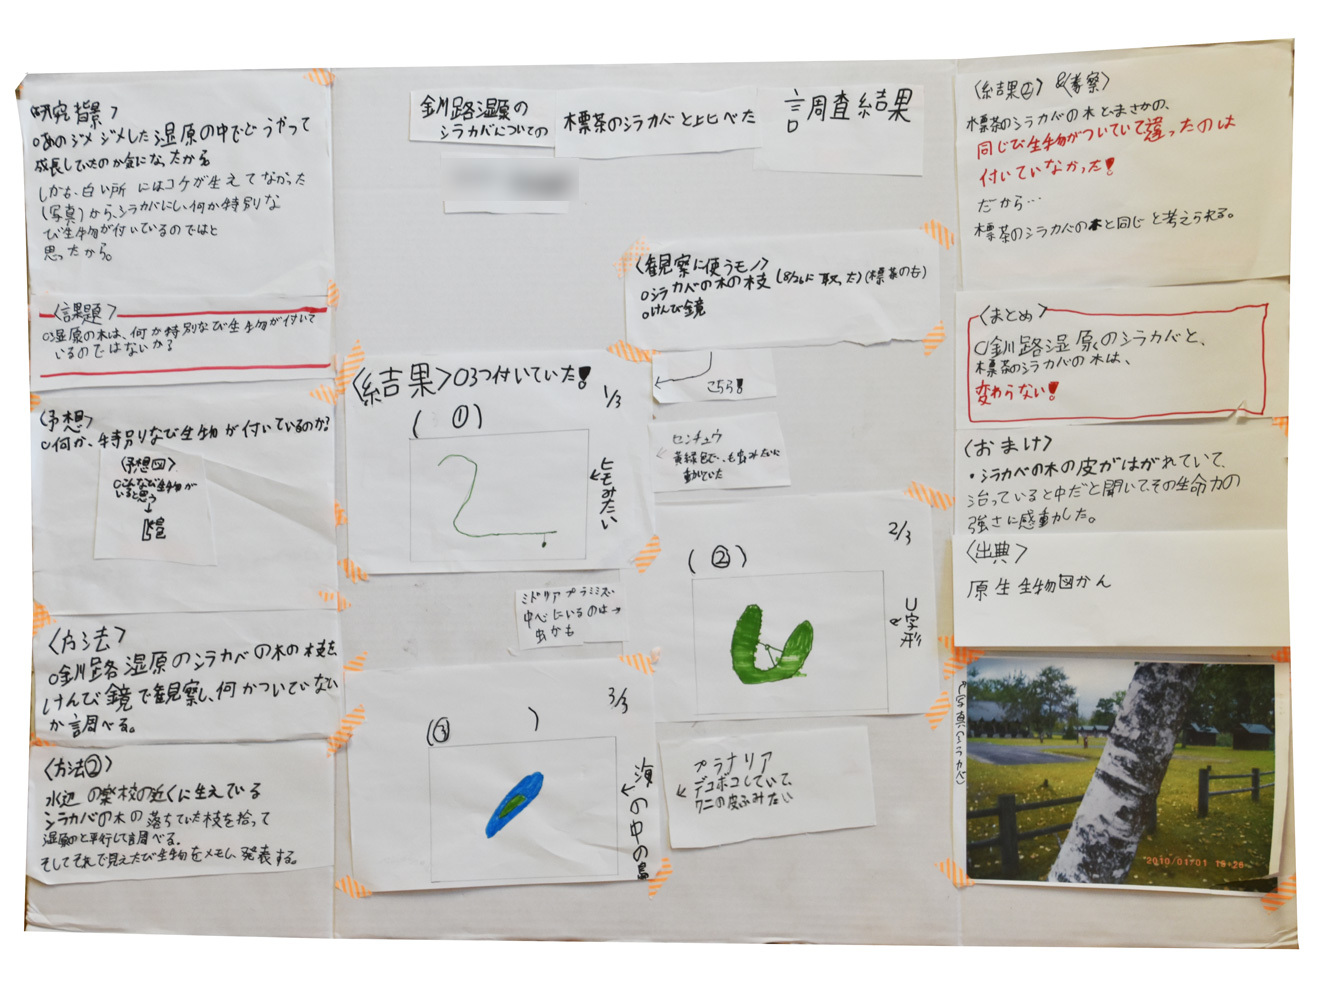 釧路湿原の
シラカバについての
標茶のシラカバと比べた
調査結果
〈研究背景〉
○あのジメジメした湿原の中でどうやって
成長していたのか気になったから
しかも、白い所にはコケが生えてなかった
(写真)から、シラカバにし、何か特別な
び生物が付いているのではと
思ったから。
〈課題〉
○湿原の木は、何か特別なび生物が付いて
いるのではないか?
〈予想〉
○何か、特別なび生物が付いているのか?
〈予想図〉
○こんなび生物が
いると思う
↓
〈方法〉
○釧路湿原のシラカバの木の枝を
けんび鏡で観察し、何かついでないか
か調べる。
〈方法②〉
水辺の楽校の近くに生えている
シラカバの木の落ちていた枝を拾って
湿原のと平行して調べる。
そしてそれで見えたび生物をメモし、発表する。
〈観察に使うモノ〉
○シラカバの木の枝(8/26に取った)(標茶のも)
○けんび鏡
〈結果〉○3つ付いていた!
こちら!
1/3
(①)
ヒモみたい
センチュウ
黄緑色で、
動いていた
2/3
(②)
U字形
ミドリアプラミミズ
中心にいるのは→
虫かも
3/3
(③)
海の中の島
プラナリア
デコボコしていて、
ワニの皮ふみたい
〈結果②〉&〈考察〉
標茶のシラカバの木とまさかの、
同じび生物がついていて違ったのは
付いていなかった!
だから…
標茶のシラカバの木と同じと考えられる。
〈まとめ〉
○釧路湿原のシラカバと、
標茶のシラカバの木は、
変わらない!
〈おまけ〉
・シラカバの木の皮がはがれていて、
治っていると中だと聞いて、その生命力の
強さに感動した。
〈出典〉
原生生物図かん
(写真)(シラカバ)
2010/01/01